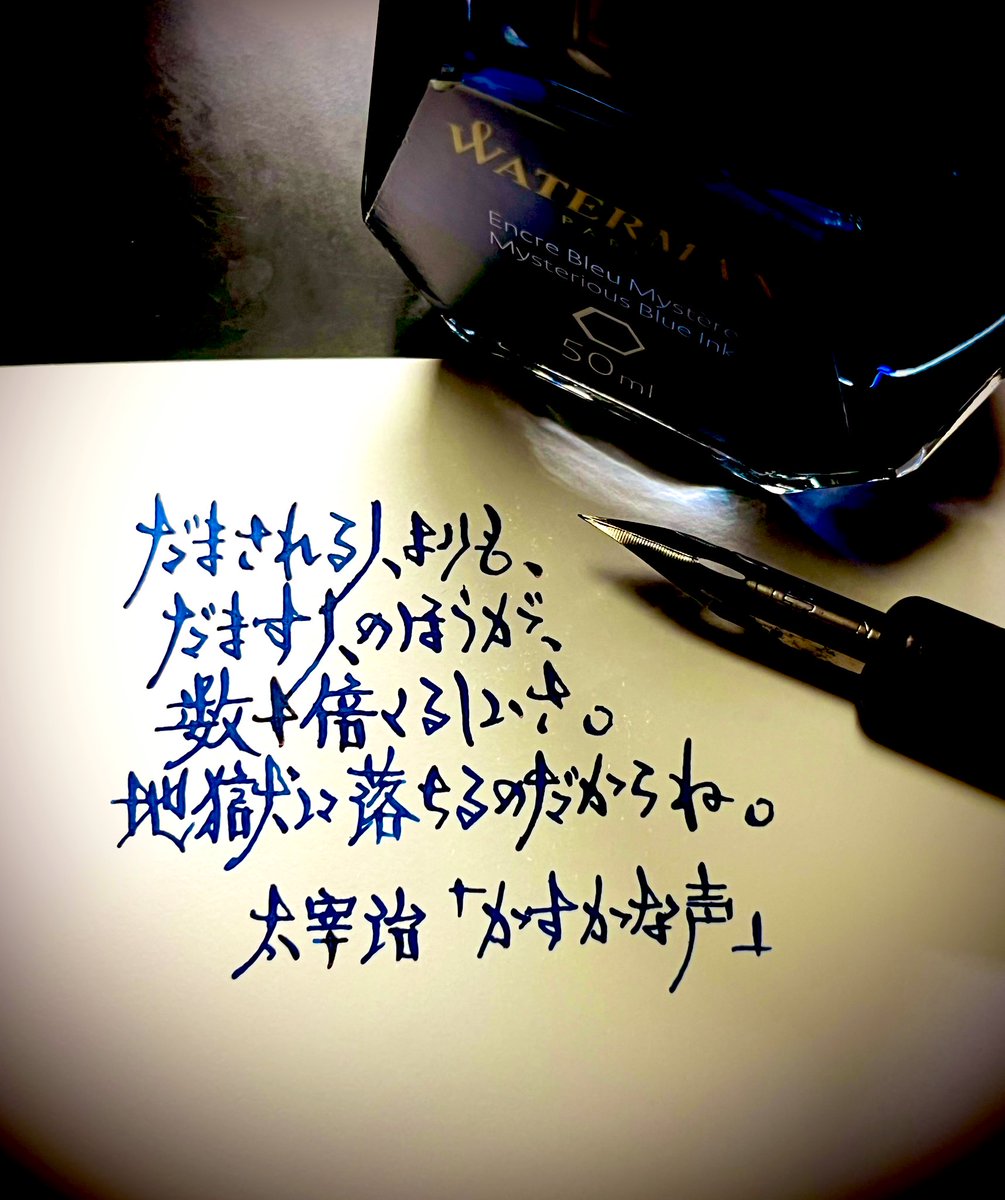 WATERMAN
PARIS
Encre Bleu Mystère
Mysterious Blue Ink
50 ml
だまされる人よりも、
だます人のほうが、
数十倍くるしいさ。
地獄に落ちるのだからね。
太宰治「かすかな声」